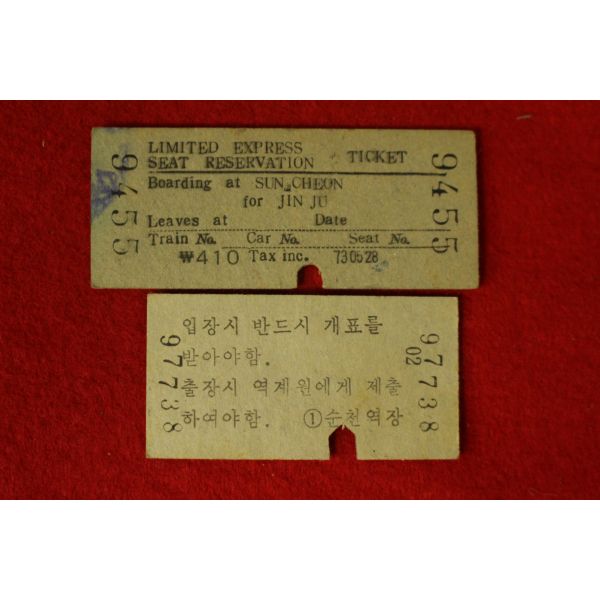 LIMITED EXPRESS
SEAT RESERVATION TICKET
Boarding at SUN CHEON
for JIN JU
Leaves at Date
Train No. Car No. Seat No.
₩410 Tax inc. 730528
9455
9455
입장시 반드시 개표를
받아야함.
출장시 역계원에게 제출
하여야함. ①순천역장
97738
02
97738